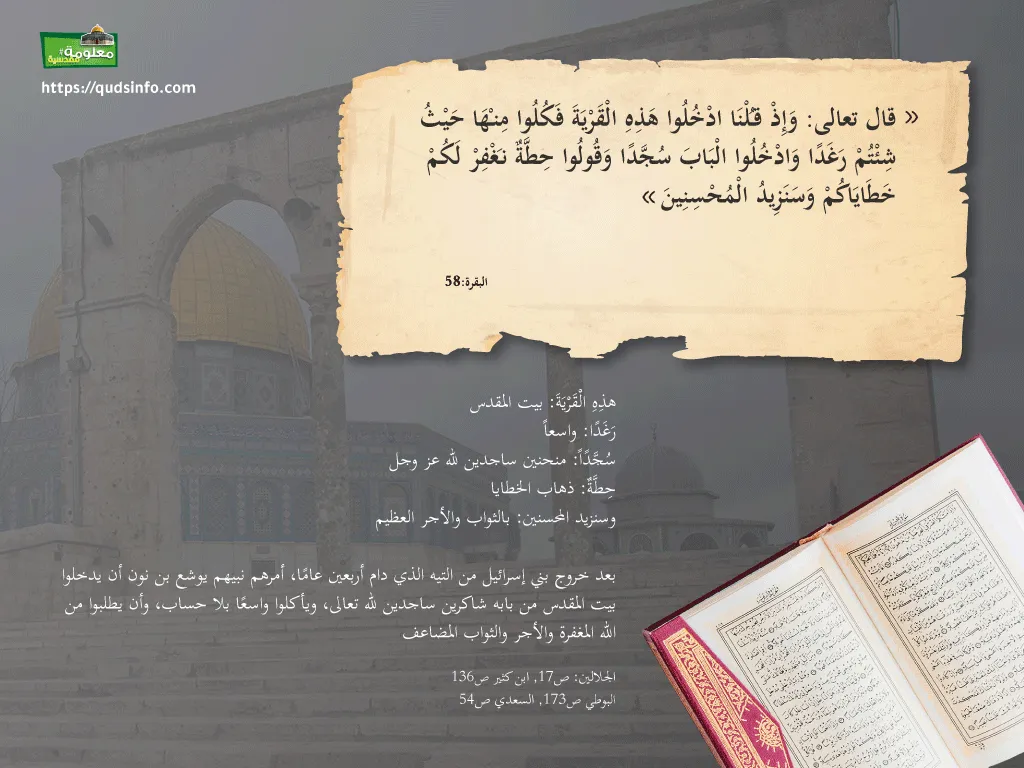 #معلومة
مقدسية
https://qudsinfo.com
« قال تعالى: وَإِذْ قُلْنَا ادْخُلُوا هَذِهِ الْقَرْيَةَ فَكُلُوا مِنْهَا حَيْثُ
شِئْتُمْ رَغَدًا وَادْخُلُوا الْبَابَ سُجَّدًا وَقُولُوا حِطَّةٌ نَغْفِرْ لَكُمْ
خَطَايَاكُمْ وَسَنَزِيدُ الْمُحْسِنِينَ »
البقرة:58
هذِهِ الْقَرْيَةَ: بيت المقدس
رَغَدًا: واسعاً
سُجَّدًاً: منحنين ساجدين لله عز وجل
حِطَّةٌ: ذهاب الخطايا
وسنزيد المحسنين: بالثواب والأجر العظيم
بعد خروج بني إسرائيل من التيه الذي دام أربعين عامًا، أمرهم نبيهم يوشع بن نون أن يدخلوا
بيت المقدس من بابه شاكرين ساجدين لله تعالى، ويأكلوا واسعًا بلا حساب، وأن يطلبوا من
الله المغفرة والأجر والثواب المضاعف
الجلالين: ص17, ابن كثير ص136
البوطي ص173, السعدي ص54